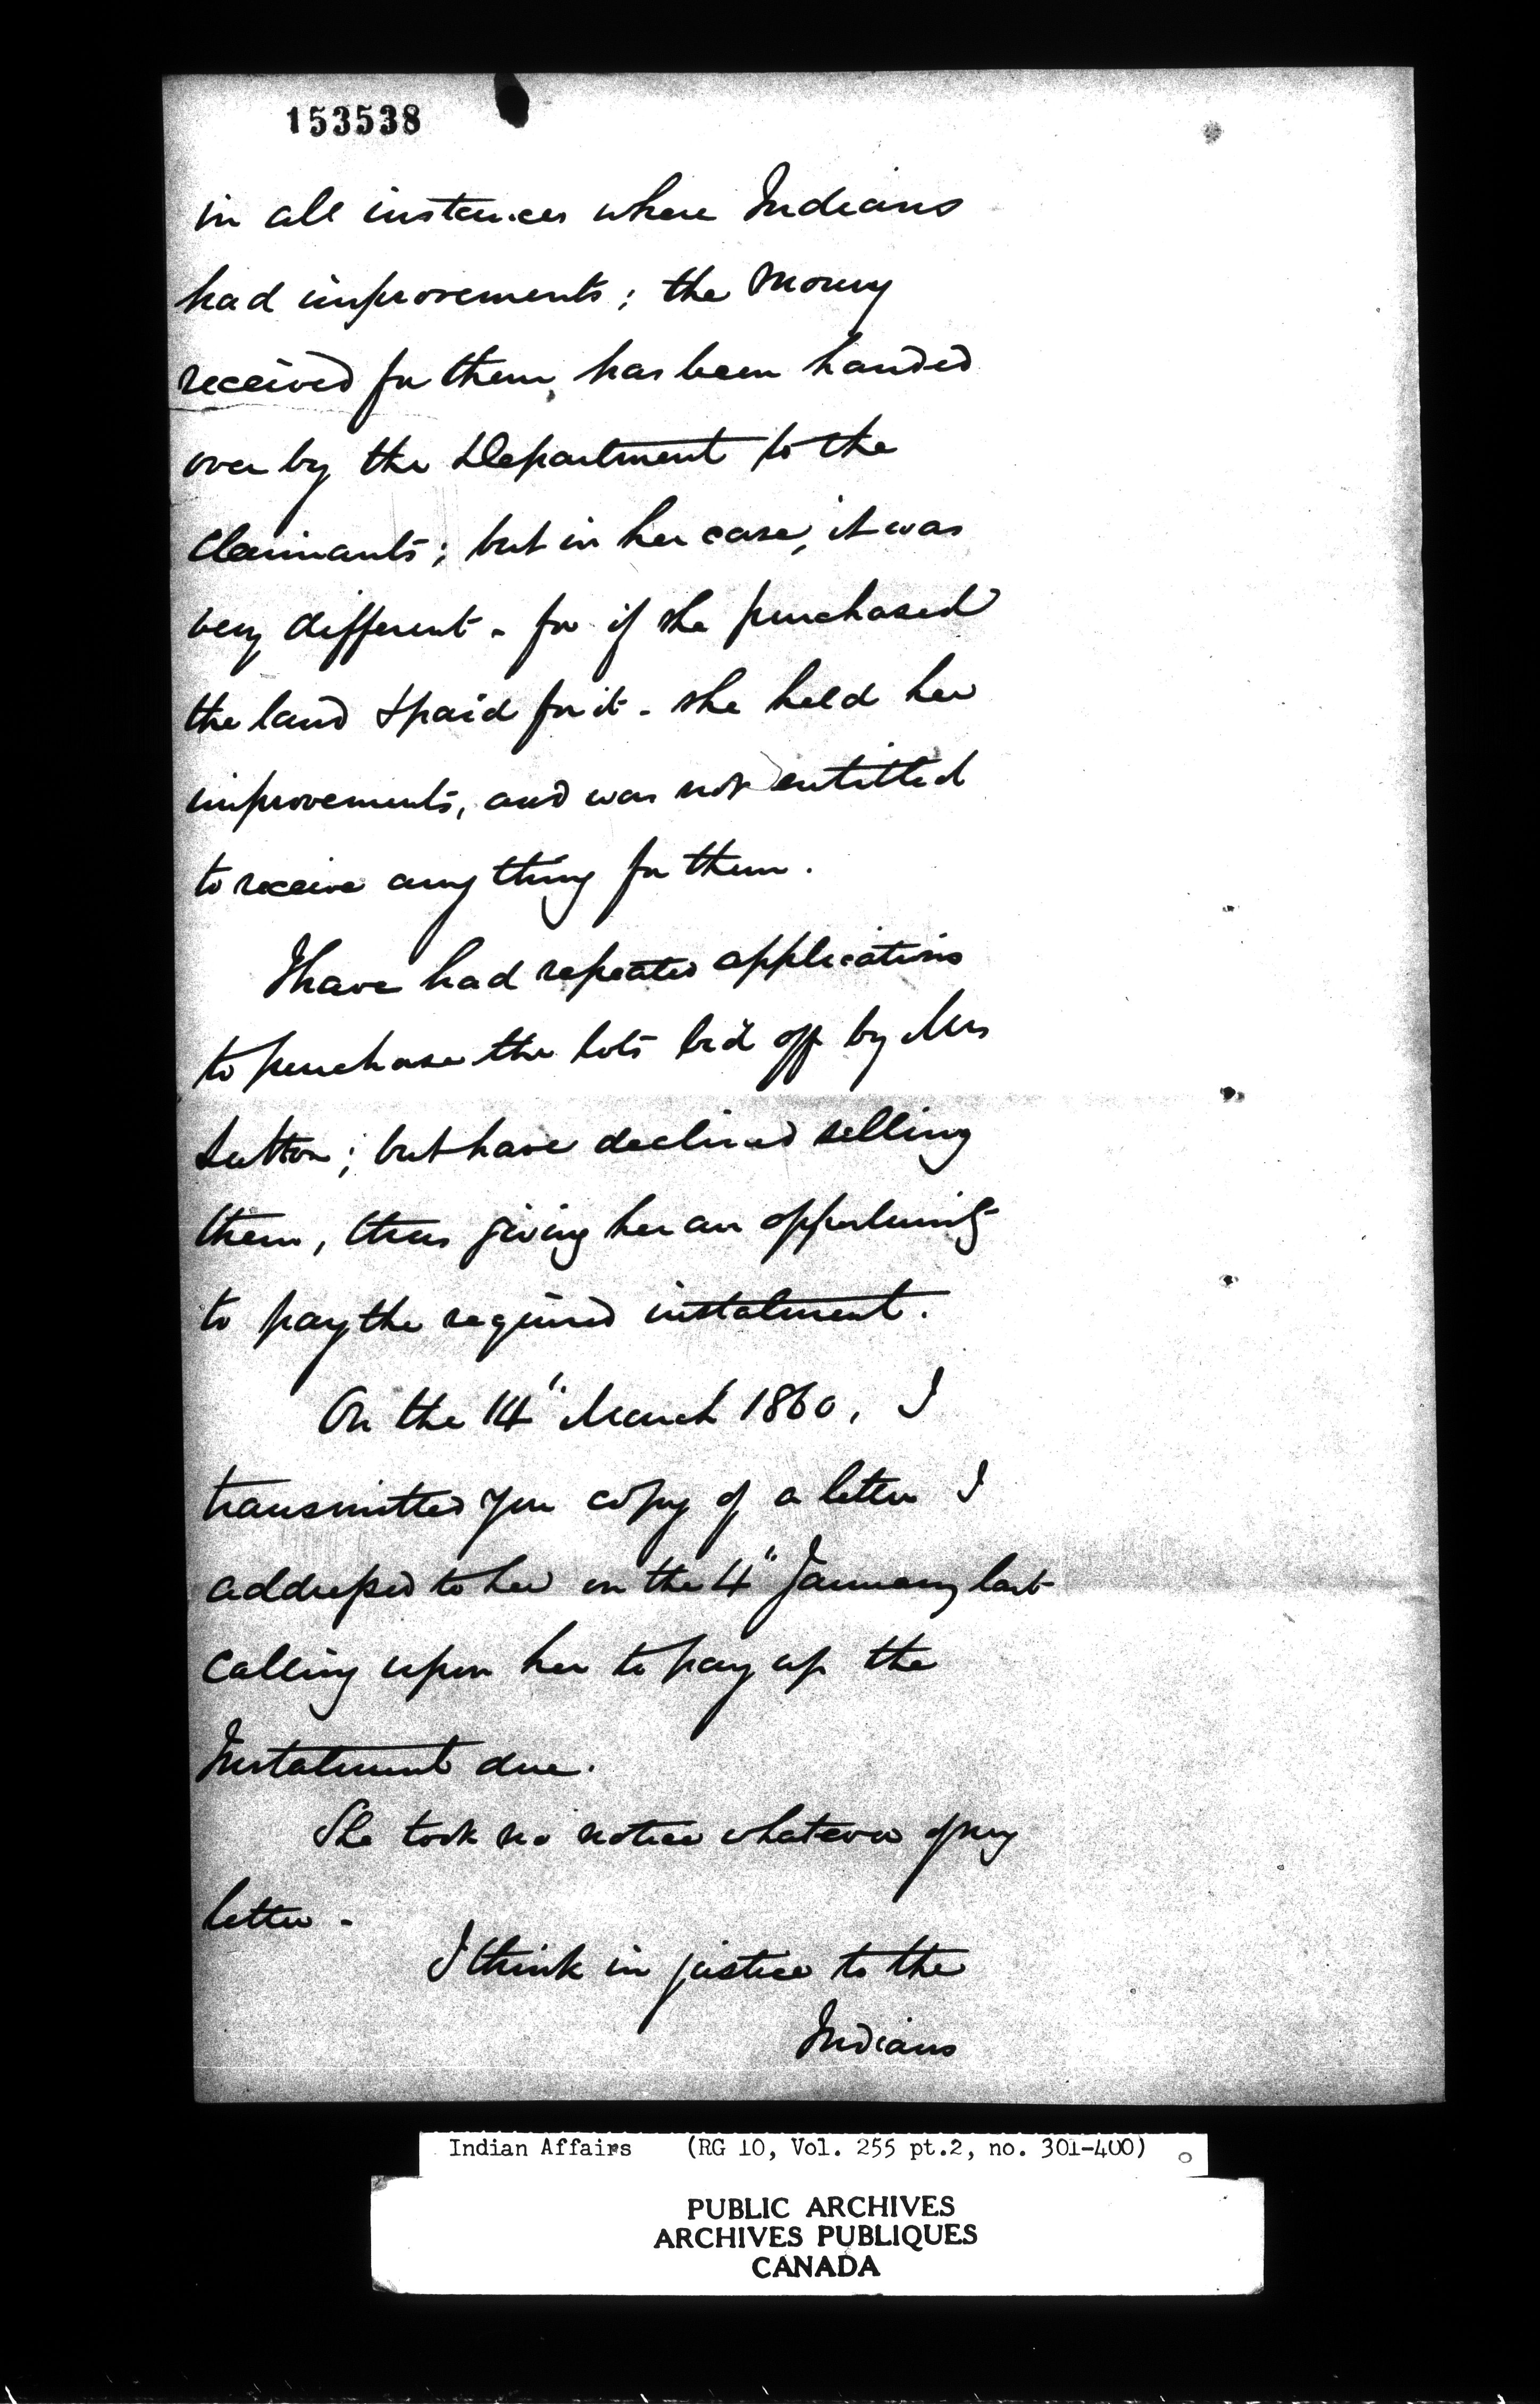 153538
in all instances where Indians
had improvements; the money
received for them, has been handed
over by the Department to the
Claimants; but in her case, it was
very different - for if she purchased
the land & paid for it - she held her
improvements, and was not entitled
to receive any thing for them.
I have had repeated applications
to purchase the lots bid off by Mrs
Sutton; but have declined selling
them, thus giving her an opportunity
to pay the required instalment.
On the 14" March 1860, I
transmitted you copy of a letter I
addressed to her on the 4" January last
Calling upon her to pay up the
Instalment due.
She took no notice whatever of my
letter -
I think in justice to the
Indians
Indian Affairs (RG 10, Vol. 255 pt.2, no. 301-400)
PUBLIC ARCHIVES
ARCHIVES PUBLIQUES
CANADA